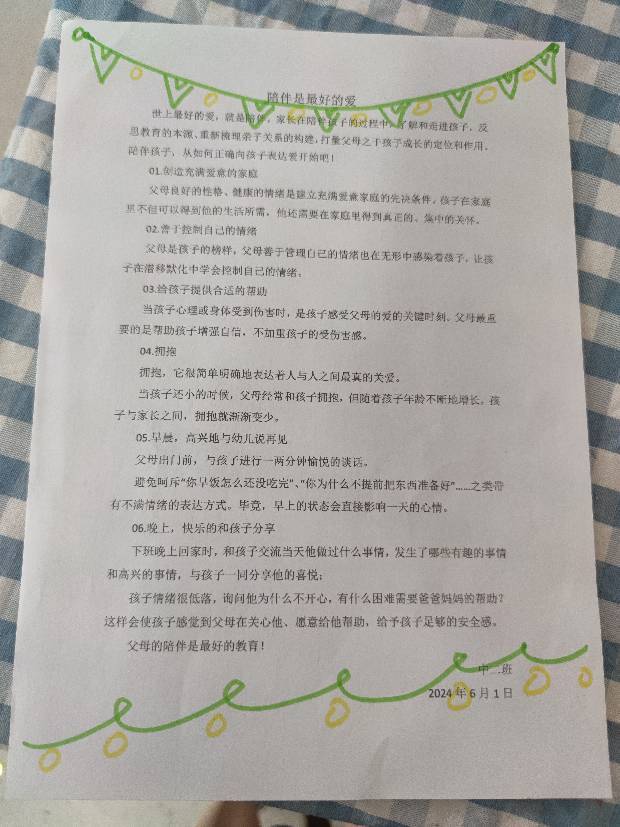 陪伴是最好的爱
世上最好的爱，就是陪伴。家长在陪伴孩子的过程中，了解和走进孩子，反
思教育的本源、重新梳理亲子关系的构建，打量父母之于孩子成长的定位和作用。
陪伴孩子，从如何正确向孩子表达爱开始吧！
01.创造充满爱意的家庭
父母良好的性格、健康的情绪是建立充满爱意家庭的先决条件。孩子在家庭
里不但可以得到他的生活所需，他还需要在家庭里得到真正的、集中的关怀。
02.善于控制自己的情绪
父母是孩子的榜样，父母善于管理自己的情绪也在无形中感染着孩子，让孩
子在潜移默化中学会控制自己的情绪；
03.给孩子提供合适的帮助
当孩子心理或身体受到伤害时，是孩子感受父母的爱的关键时刻。父母最重
要的是帮助孩子增强自信，不加重孩子的受伤害感。
04.拥抱
拥抱，它很简单明确地表达着人与人之间最真的关爱。
当孩子还小的时候，父母经常和孩子拥抱，但随着孩子年龄不断地增长，孩
子与家长之间，拥抱就渐渐变少。
05.早晨，高兴地与幼儿说再见
父母出门前，与孩子进行一两分钟愉悦的谈话。
避免呵斥“你早饭怎么还没吃完”、“你为什么不提前把东西准备好”……之类带
有不满情绪的表达方式。毕竟，早上的状态会直接影响一天的心情。
06.晚上，快乐的和孩子分享
下班晚上回家时，和孩子交流当天他做过什么事情，发生了哪些有趣的事情
和高兴的事情，与孩子一同分享他的喜悦；
孩子情绪很低落，询问他为什么不开心，有什么困难需要爸爸妈妈的帮助？
这样会使孩子感觉到父母在关心他、愿意给他帮助，给予孩子足够的安全感。
父母的陪伴是最好的教育！
中 班
2024 年 6 月 1 日